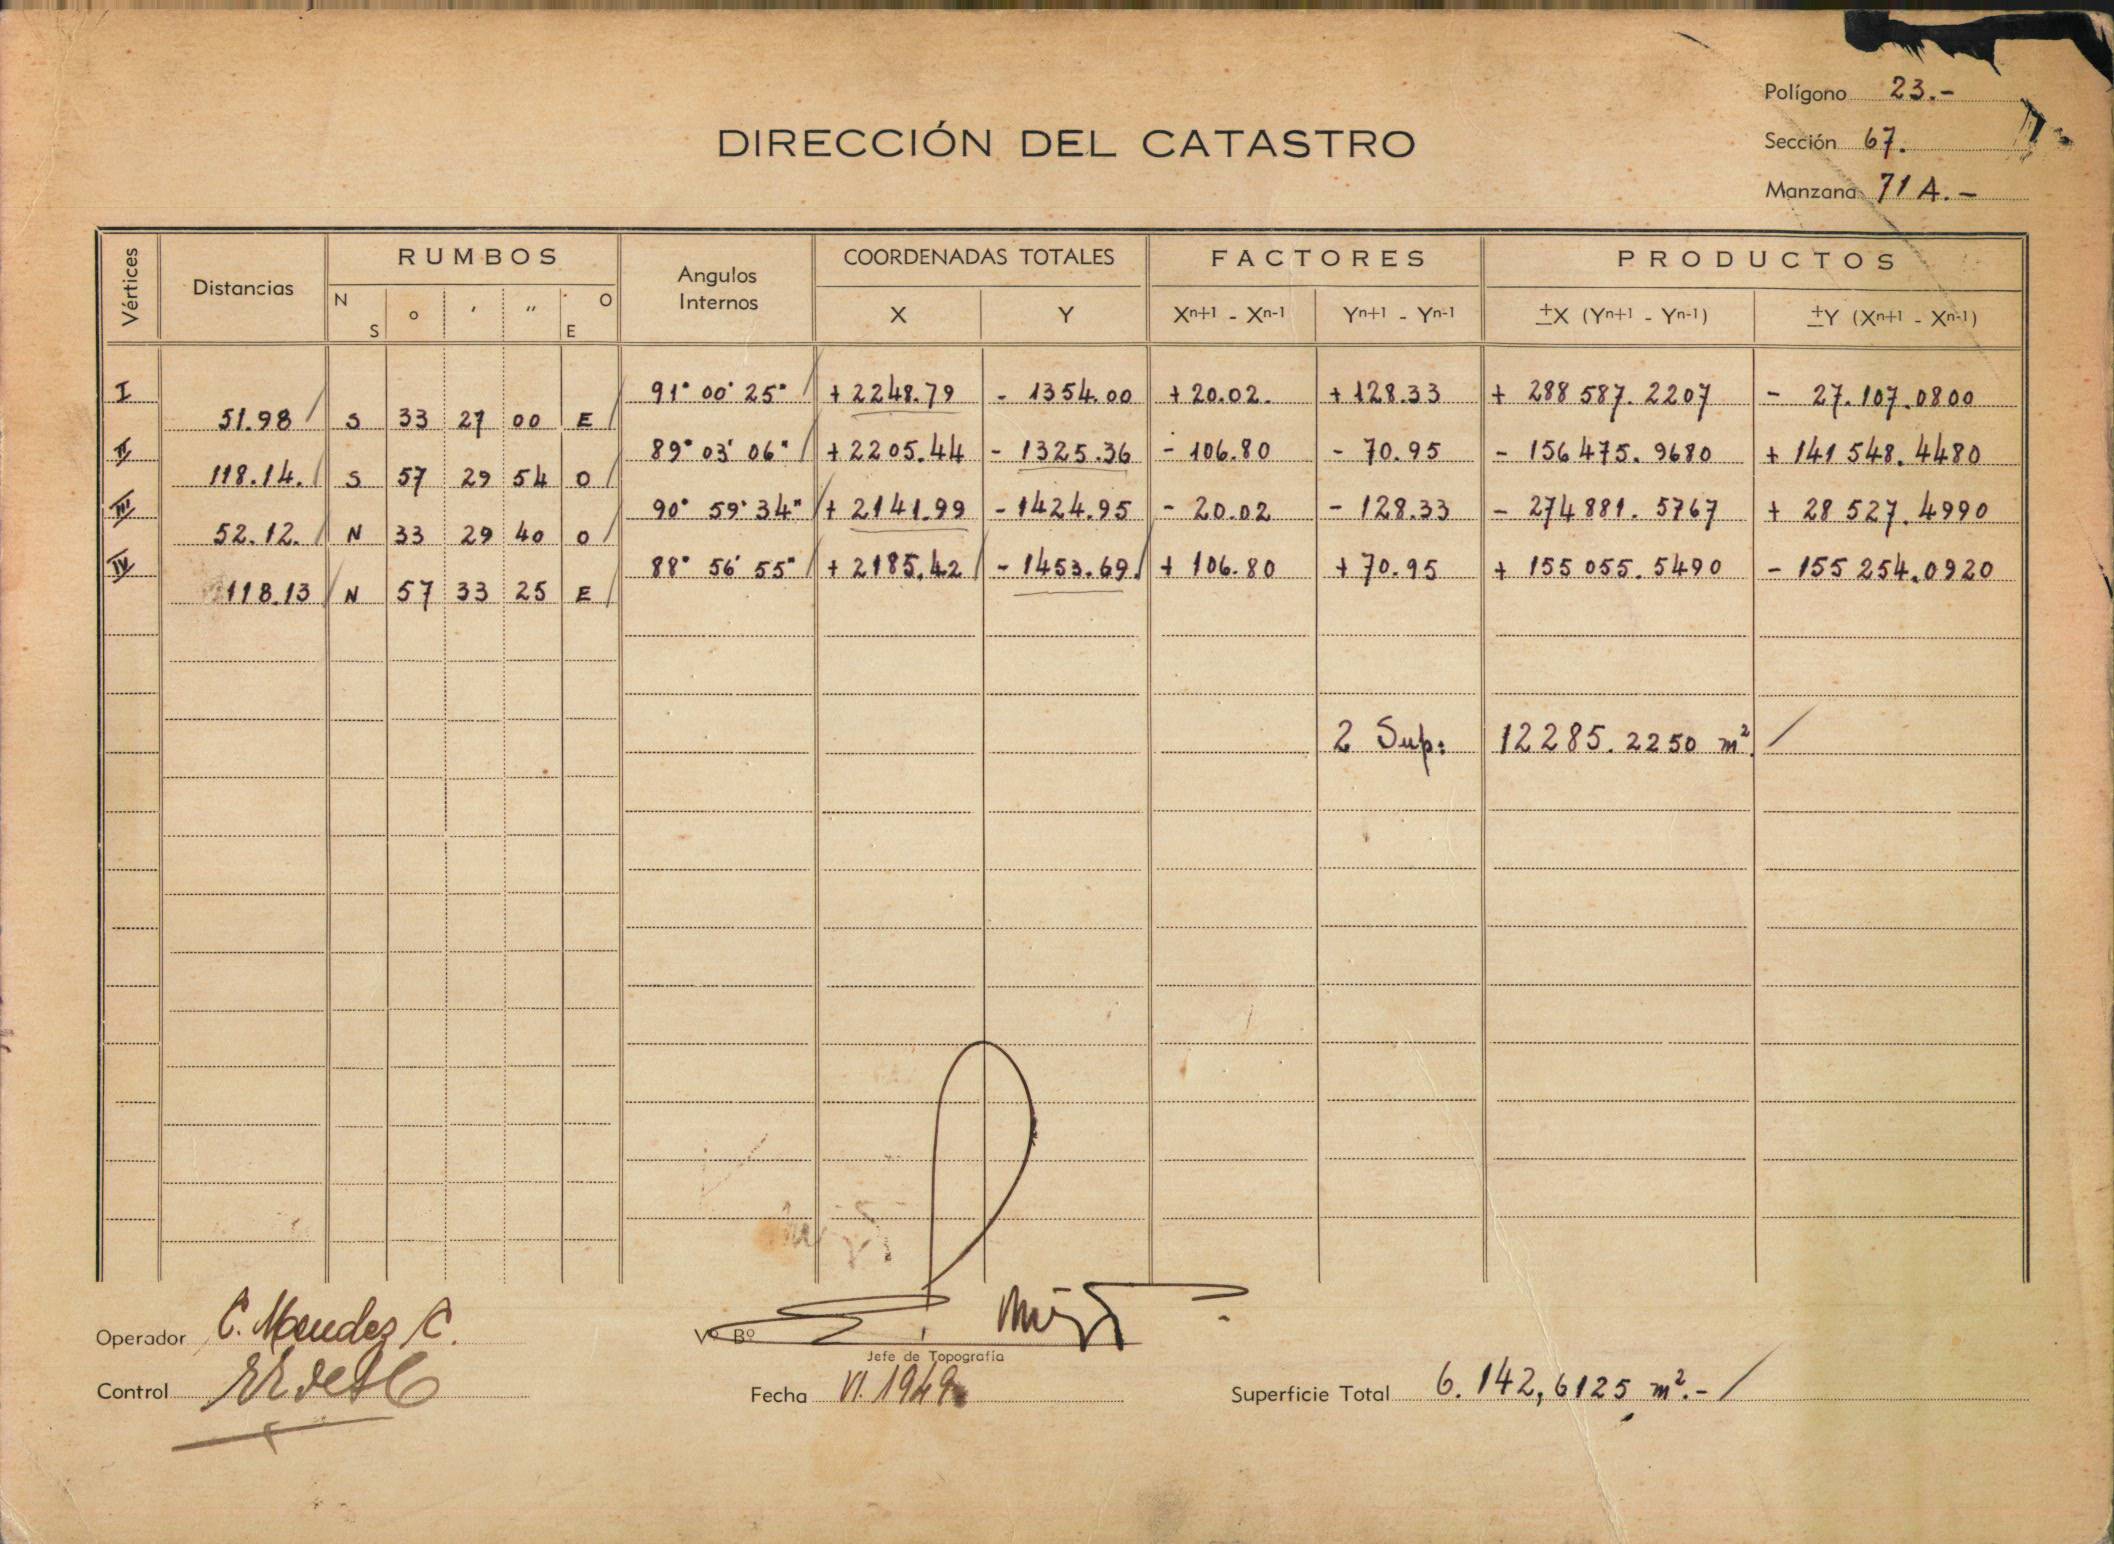 Polígono 23.-
DIRECCIÓN DEL CATASTRO
Sección 67.
Manzana 71 A.-
Vértices Distancias RUMBOS Angulos Internos COORDENADAS TOTALES FACTORES PRODUCTOS
N S ° ' " O E X Y Xn+1 - Xn-1 Yn+1 - Yn-1 ±X (Yn+1 - Yn-1) ±Y (Xn+1 - Xn-1)
I 91° 00' 25" + 2248.79 - 1354.00 + 20.02. + 128.33 + 288 587. 2207 - 27.107.0800
51.98 S 33 27 00 E
II 89° 03' 06" + 2205.44 - 1325.36 - 106.80 - 70.95 - 156 475. 9680 + 141 548. 4480
118.14. S 57 29 54 O
III 90° 59' 34" + 2141.99 - 1424.95 - 20.02 - 128.33 - 274 881. 5767 + 28 527. 4990
52.12. N 33 29 40 O
IV 88° 56' 55" + 2185.42 - 1453.69. + 106.80 + 70.95 + 155 055. 5490 - 155 254.0920
118.13 N 57 33 25 E
2 Sup: 12285. 2250 m².
Operador C. Mendez C.
Vº Bº
Jefe de Topografía
Control
Fecha VI. 1949
Superficie Total 6. 142, 6125 m².-